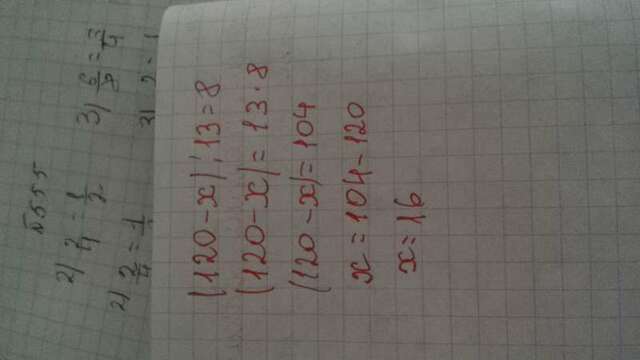 №555
2) 2/4 = 1/2 3) 6/8 = 3/4
2) 2/4 = 1
(120-x):13=8
(120-x)=13·8
(120-x)=104
x=104-120
x=16